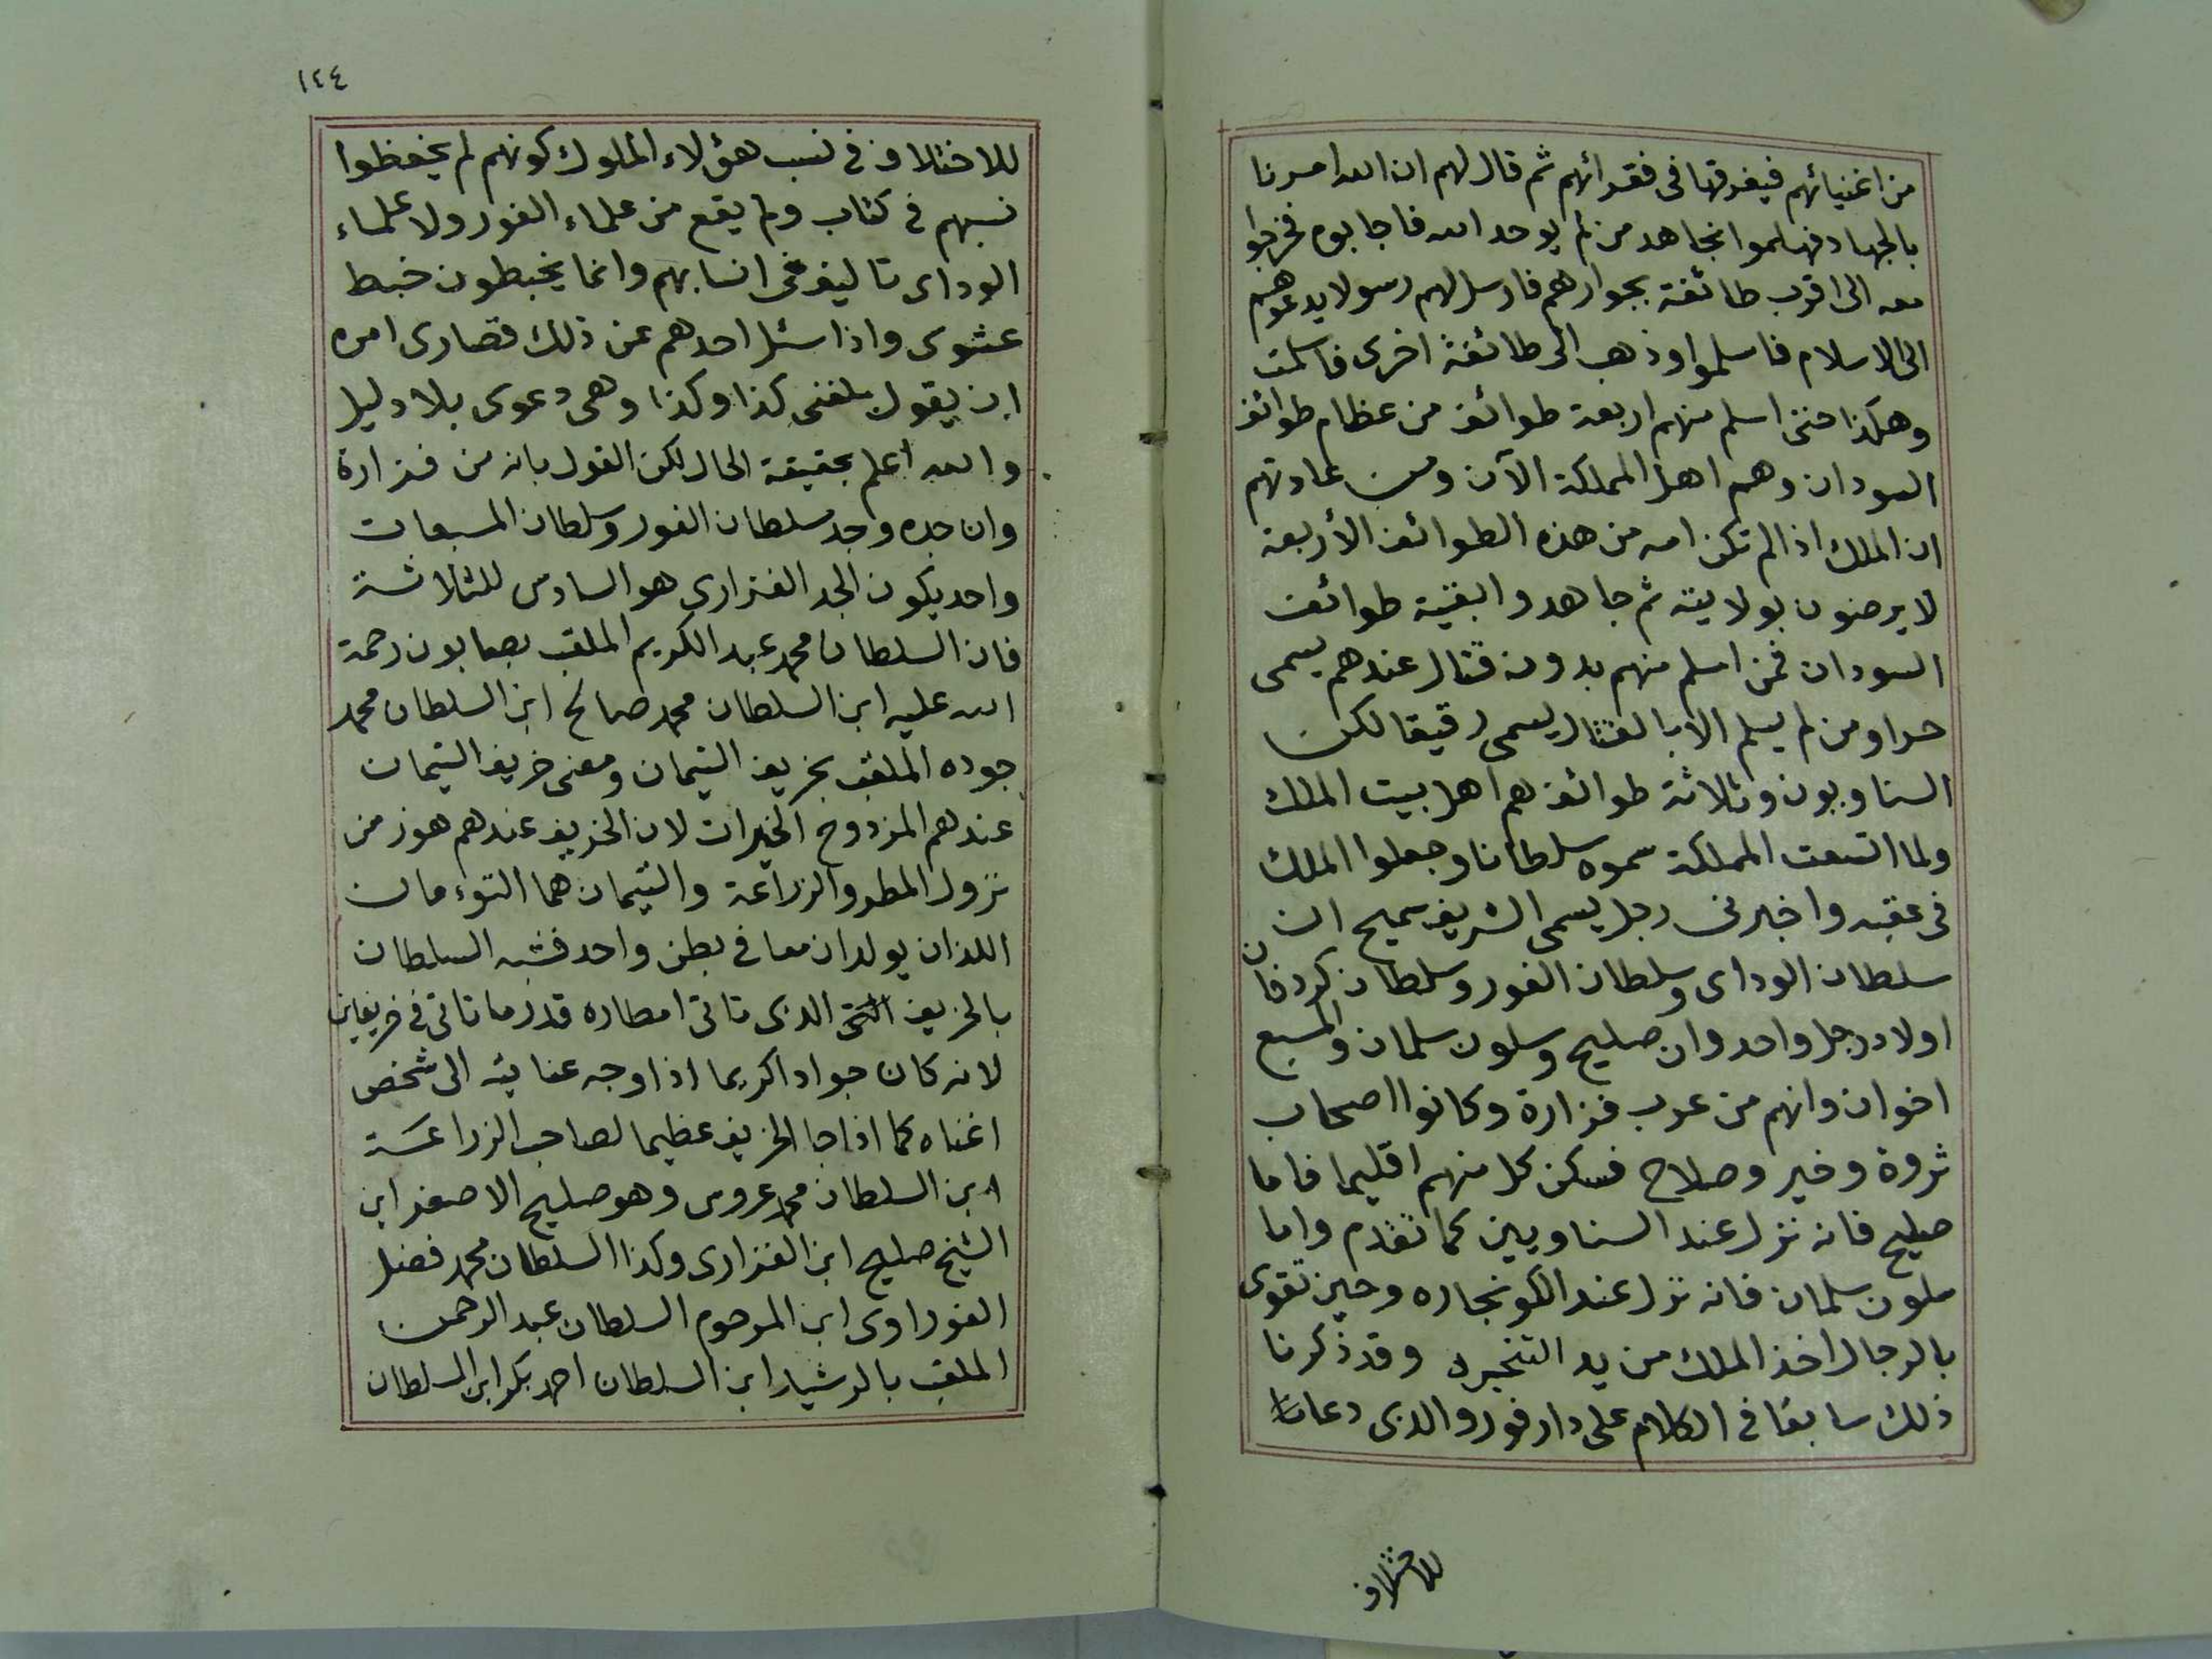 من اغنيائهم فيفرقها فى فقرائهم ثم قال لهم ان الله امرنا
بالجهاد فهلموا نجاهد من لم يوحد الله فاجابوه فخرجوا
معه الى اقرب طائفة بجوارهم فارسل لهم رسولا يدعوهم
الى الاسلام فاسلموا وذهب الى طائفة اخرى فاسلمت
وهكذا حتى اسلم منهم اربعة طوائف من عظام طوائف
السودان وهم اهل المملكة الآن ومن عادتهم
ان الملك اذا لم تكن امه من هذه الطوائف الأربعة
لا يرضون بولايته ثم جاهدوا بقية طوائف
السودان فمن اسلم منهم بدون قتال عندهم يسمى
حرا ومن لم يسلم الا بالقتال يسمى رقيقا لكن
السناويون وثلاثة طوائف هم اهل بيت الملك
ولما اتسعت المملكة سموه سلطانا وجعلوا الملك
فى عقبه واخبرنى رجل يسمى الشريف سميح ان
سلطان الوداى وسلطان الفور وسلطان كردفان
اولاد رجل واحد وان صليح وسلون سلمان والمسبع
اخوان وانهم من عرب فزارة وكانوا اصحاب
ثروة وخير وصلاح فسكن كل منهم اقليما فاما
صليح فانه نزل عند السناويين كما تقدم واما
سلون سلمان فانه نزل عند الكونجاره وحين تقوى
بالرجال اخذ الملك من يد التنجره وقد ذكرنا
ذلك سابقا فى الكلام على دار فور والذى دعانا
للاختلاف
١٢٤
للاختلاف فى نسب هؤلاء الملوك كونهم لم يحفظوا
نسبهم فى كتاب ولم يقع من علماء الفور ولا علماء
الوداى تاليف فى انسابهم وانما يخبطون خبط
عشوى واذا سئل احدهم عن ذلك قصارى امره
ان يقول بلغنى كذا وكذا وهى دعوى بلا دليل
والله اعلم بحقيقة الحال لكن القول بانه من فزارة
وان جده وجد سلطان الفور وسلطان المسبعات
واحد يكون الجد الفزارى هو السادس للثلاثة
فان السلطان محمد عبد الكريم الملقب بصابون رحمة
الله عليه ابن السلطان محمد صالح ابن السلطان محمد
جوده الملقب بخريف التيمان ومعنى خريف التيمان
عندهم المزدوج الخيرات لان الخريف عندهم هو زمن
نزول المطر والزراعة والتيمان هما التوءمان
اللذان يولدان معا فى بطن واحد فشبه السلطان
بالخريف الذى تاتى امطاره قدر ما تاتى فى خريفين
لانه كان جوادا كريما اذا وجه عنايته الى شخص
اغناه كما اذا جا الخريف عظيما لصاحب الزراعة
ابن السلطان محمد عروس وهو صليح الاصغر ابن
الشيخ صليح ابن الفزارى وكذا السلطان محمد فضل
الفوراوى ابن المرحوم السلطان عبد الرحمن
الملقب بالرشيد ابن السلطان احمد بكر ابن السلطان